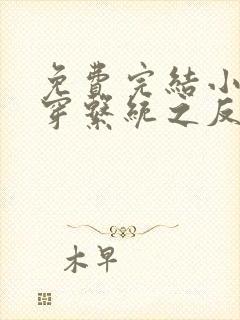 免費完結小
穿繫統之反
木早